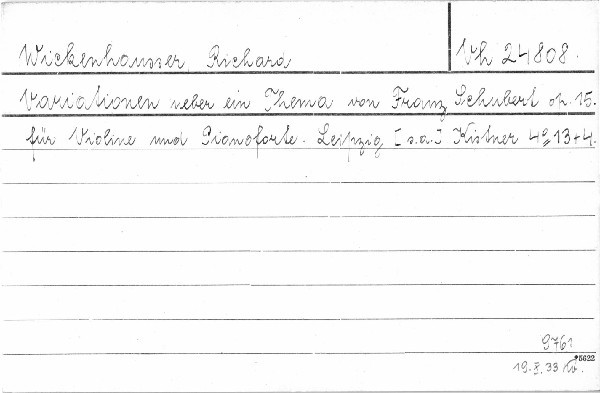 Wickenhausser, Richard Vh 24808.
Variationen ueber ein Thema von Franz Schubert op. 15.
für Violine und Pianoforte. Leipzig [s.a.] Kistner 4º 13+4.
976
*5622
19. X. 33